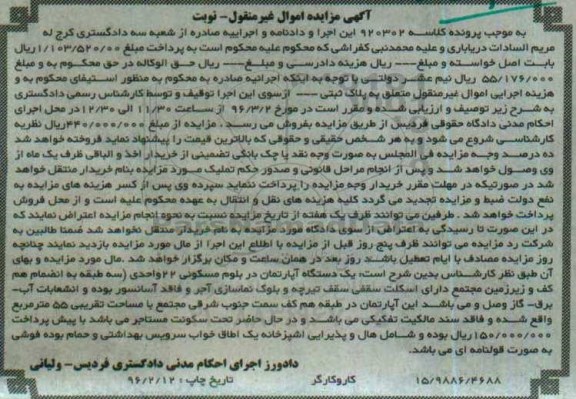 آگهی مزایده اموال غیرمنقول- نوبت
به موجب پرونده کلاسه ۹۲۰۳۰۲ این اجرا و دادنامه و اجراییه صادره از شعبه سه دادگستری کرج له
مریم السادات دریاباری و علیه محمدنبی کفراشی که محکوم علیه محکوم است به پرداخت مبلغ ۱/۱۰۳/۵۲۰/۰۰ ریال
بابت اصل خواسته و مبلغ---- ریال هزینه دادرسی و مبلغ---- ریال حق الوکاله در حق محکوم به و مبلغ
۵۵/۱۷۶/۰۰۰ ریال نیم عشر دولتی با توجه به اینکه اجرائیه صادره به محکوم به منظور استیفای محکوم به و
هزینه اجرایی اموال غیرمنقول متعلق به پلاک ثبتی ---- ازسوی این اجرا توقیف و توسط کارشناس رسمی دادگستری
به شرح زیر توصیف و ارزیابی شده و مقرر است در مورخ ۹۶/۳/۲ از ساعت ۱۱/۳۰ الی ۱۲/۳۰ در محل اجرای
احکام مدنی دادگاه حقوقی فردیس از طریق مزایده بفروش می رسد. مزایده از مبلغ ۴۴۰/۰۰۰/۰۰۰ ریال نظریه
کارشناسی شروع می شود و به هر شخص حقیقی و حقوقی که بالاترین قیمت را پیشنهاد نماید فروخته خواهد شد
ده درصد وجه مزایده فی المجلس به صورت وجه نقد یا چک بانکی تضمینی از خریدار اخذ و الباقی ظرف یک ماه از
وی وصول خواهد شد و پس از انجام مراحل قانونی و صدور حکم تملیک مورد مزایده بنام خریدار منتقل خواهد
شد در صورتیکه در مهلت مقرر خریدار وجه مزایده را پرداخت ننماید سپرده وی پس از کسر هزینه های مزایده به
نفع دولت ضبط و مزایده تجدید می گردد کلیه هزینه های نقل و انتقال به عهده محکوم علیه است و از محل فروش
پرداخت خواهد شد . طرفین می توانند ظرف یک هفته از تاریخ مزایده نسبت به نحوه انجام مزایده اعتراض نمایند که
در این صورت تا رسیدگی به اعتراض از سوی دادگاه مورد مزایده به نام خریدار منتقل نخواهد شد ضمنا طالبین به
شرکت در مزایده می توانند ظرف پنج روز قبل از مزایده با اطلاع این اجرا از مال مورد مزایده بازدید نمایند چنانچه
روز مزایده مصادف با ایام تعطیل باشد روز بعد در همان ساعت و مکان برگزار خواهد شد .مال مورد مزایده و بهای
آن طبق نظر کارشناس بدین شرح است: یک دستگاه آپارتمان در بلوم مسکونی ۲۲واحدی (سه طبقه به انضمام هم
کف و زیرزمین مجتمع دارای اسکلت سقفی سقف تیرچه و بلوک نماسازی آجر و فاقد آسانسور بوده و انشعابات آب-
برق- گاز وصل و می باشد این آپارتمان در طبقه هم کف سمت جنوب شرقی مجتمع با مساحت تقریبی ۵۵ مترمربع
واقع شده و فاقد سند مالکیت تفکیکی می باشد و در حال حاضر تحت سکونت مستاجر می باشد با پیش پرداخت
۱۵۰/۰۰۰/۰۰۰ ریال بوده و شامل هال و پذیرایی اشپزخانه یک اطاق خواب سرویس بهداشتی و حمام بوده فوشی
به صورت قولنامه ای می باشد.
دادورز اجرای احکام مدنی دادگستری فردیس- ولیانی
۱۵/۹۸۸۶/۴۶۸۸ کاروکارگر تاریخ چاپ : ۹۶/۲/۱۲